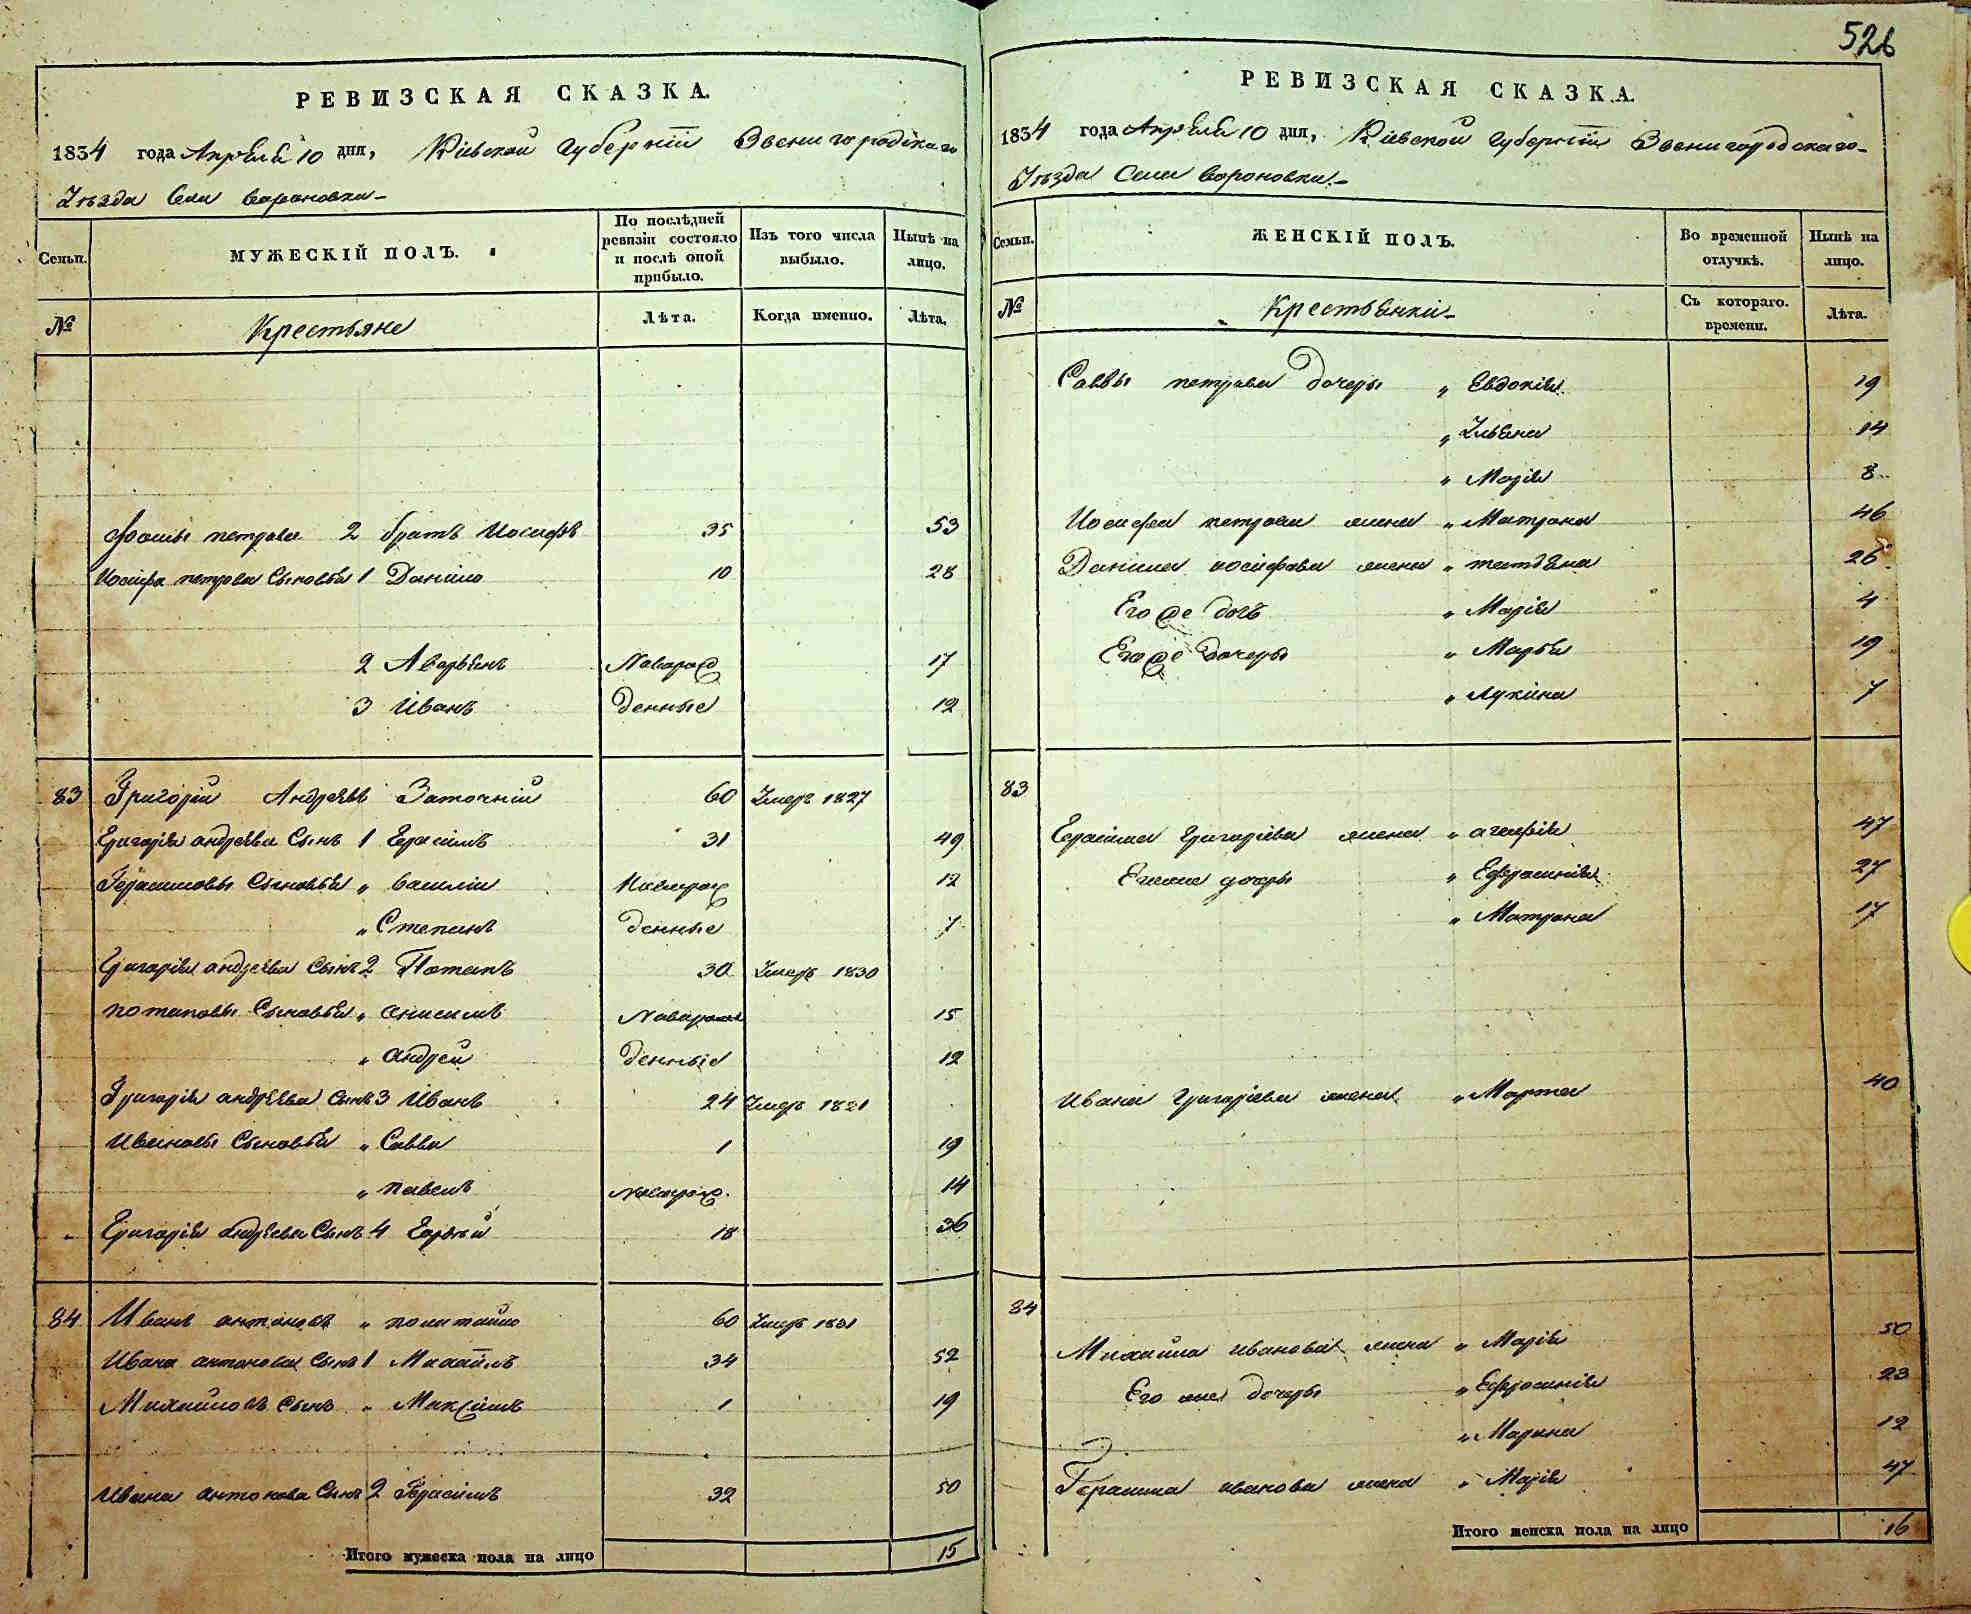 526
РЕВИЗСКАЯ СКАЗКА.
1834 года Апреля 10 дня, Кіевской Губерніи Звенигородскаго
Уезда Села Вороновки
Семьи. МУЖЕСКІЙ ПОЛЪ. По послѣдней ревизіи состояло и послѣ оной прибыло. Изъ того числа выбыло. Нынѣ на лицо.
№ Крестьяне Лѣта. Когда именно. Лѣта.
Фомы петрова 2 братъ Иосифъ 35 53
Иосифа петрова Сыновья 1 Данило 10 28
2 Аверьянъ Новорож 17
3 Иванъ денные 12
83 Григорій Андреевъ Заточній 60 Умеръ 1827
Григорія андреева Сынъ 1 Герасимъ 31 49
Герасимовы Сыновья „ Василій Новорож 12
„ Степанъ денные 7
Григорія андреева Сынъ 2 Потапъ 30 Умеръ 1830
потаповы Сыновья „ Онисимъ Новорож 15
„ андрей денные 12
Григорія андреева Сынъ 3 Иванъ 24 Умеръ 1821
Ивановы Сыновья „ Савва 1 19
„ павелъ Новорож. 14
Григорія андреева Сынъ 4 18 36
84 Иванъ антоновъ „ 60 Умеръ 1831
Ивана антонова Сынъ 1 Михайлъ 34 52
Михайловъ Сынъ „ Максимъ 1 19
Ивана антонова Сынъ 2 Герасимъ 32 50
Итого мужеска пола на лицо 15
РЕВИЗСКАЯ СКАЗКА.
1834 года Апреля 10 дня, Кіевской Губерніи Звенигородскаго
Уезда Села Вороновки.
Семьи. ЖЕНСКІЙ ПОЛЪ. Во временной отлучкѣ. Нынѣ на лицо.
№ Крестьянки Съ котораго времени. Лѣта.
Саввы петрова дочеры „ Евдокія 19
„ Ульяна 14
„ Марія 8
Иосифа петрова жена „ Матрона 46
Данила иосифова жена „ татьяна 26
Его же дочь „ Марія 4
Его же дочеры „ Марья 19
„ Лукина 7
83
Герасима Григоріева жена „ агафія 47
Егоже дочеры „ Ефросинія 27
„ Матрона 17
Ивана Григоріева жена „ Марта 40
84
Михайла иванова жена „ Марія 50
Его же дочеры „ Ефросинія 23
„ Марина 12
Герасима иванова жена „ Марія 47
Итого женска пола на лицо 16